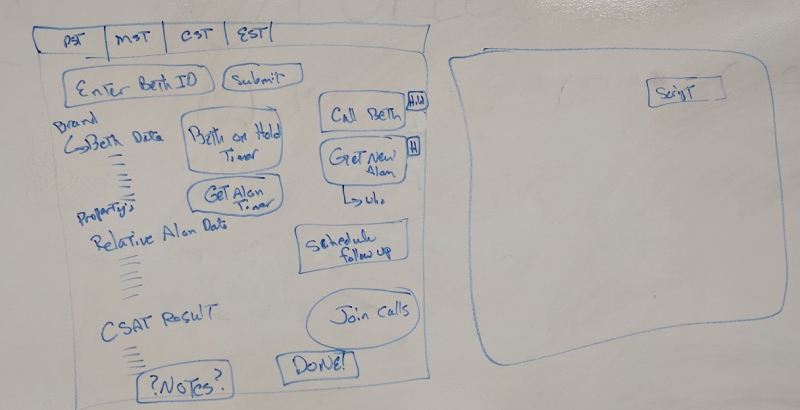 PST MST CST EST
Enter Beth ID
Submit
Brand
Beth Data
Beth on Hold
Timer
Call Beth
Get New
Alan
H
Who
Get Alan
Timer
Property's
Relative Alan Data
Schedule
follow up
CSAT Result
Join Calls
?NOTES?
DONE!
Script